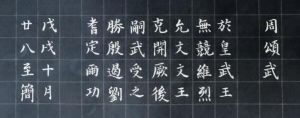 周頌武
於皇武王
無競維烈
允文文王
克開厥後
嗣武受之
勝殷遏劉
耆定爾功
戊戌十月
廿八至簡